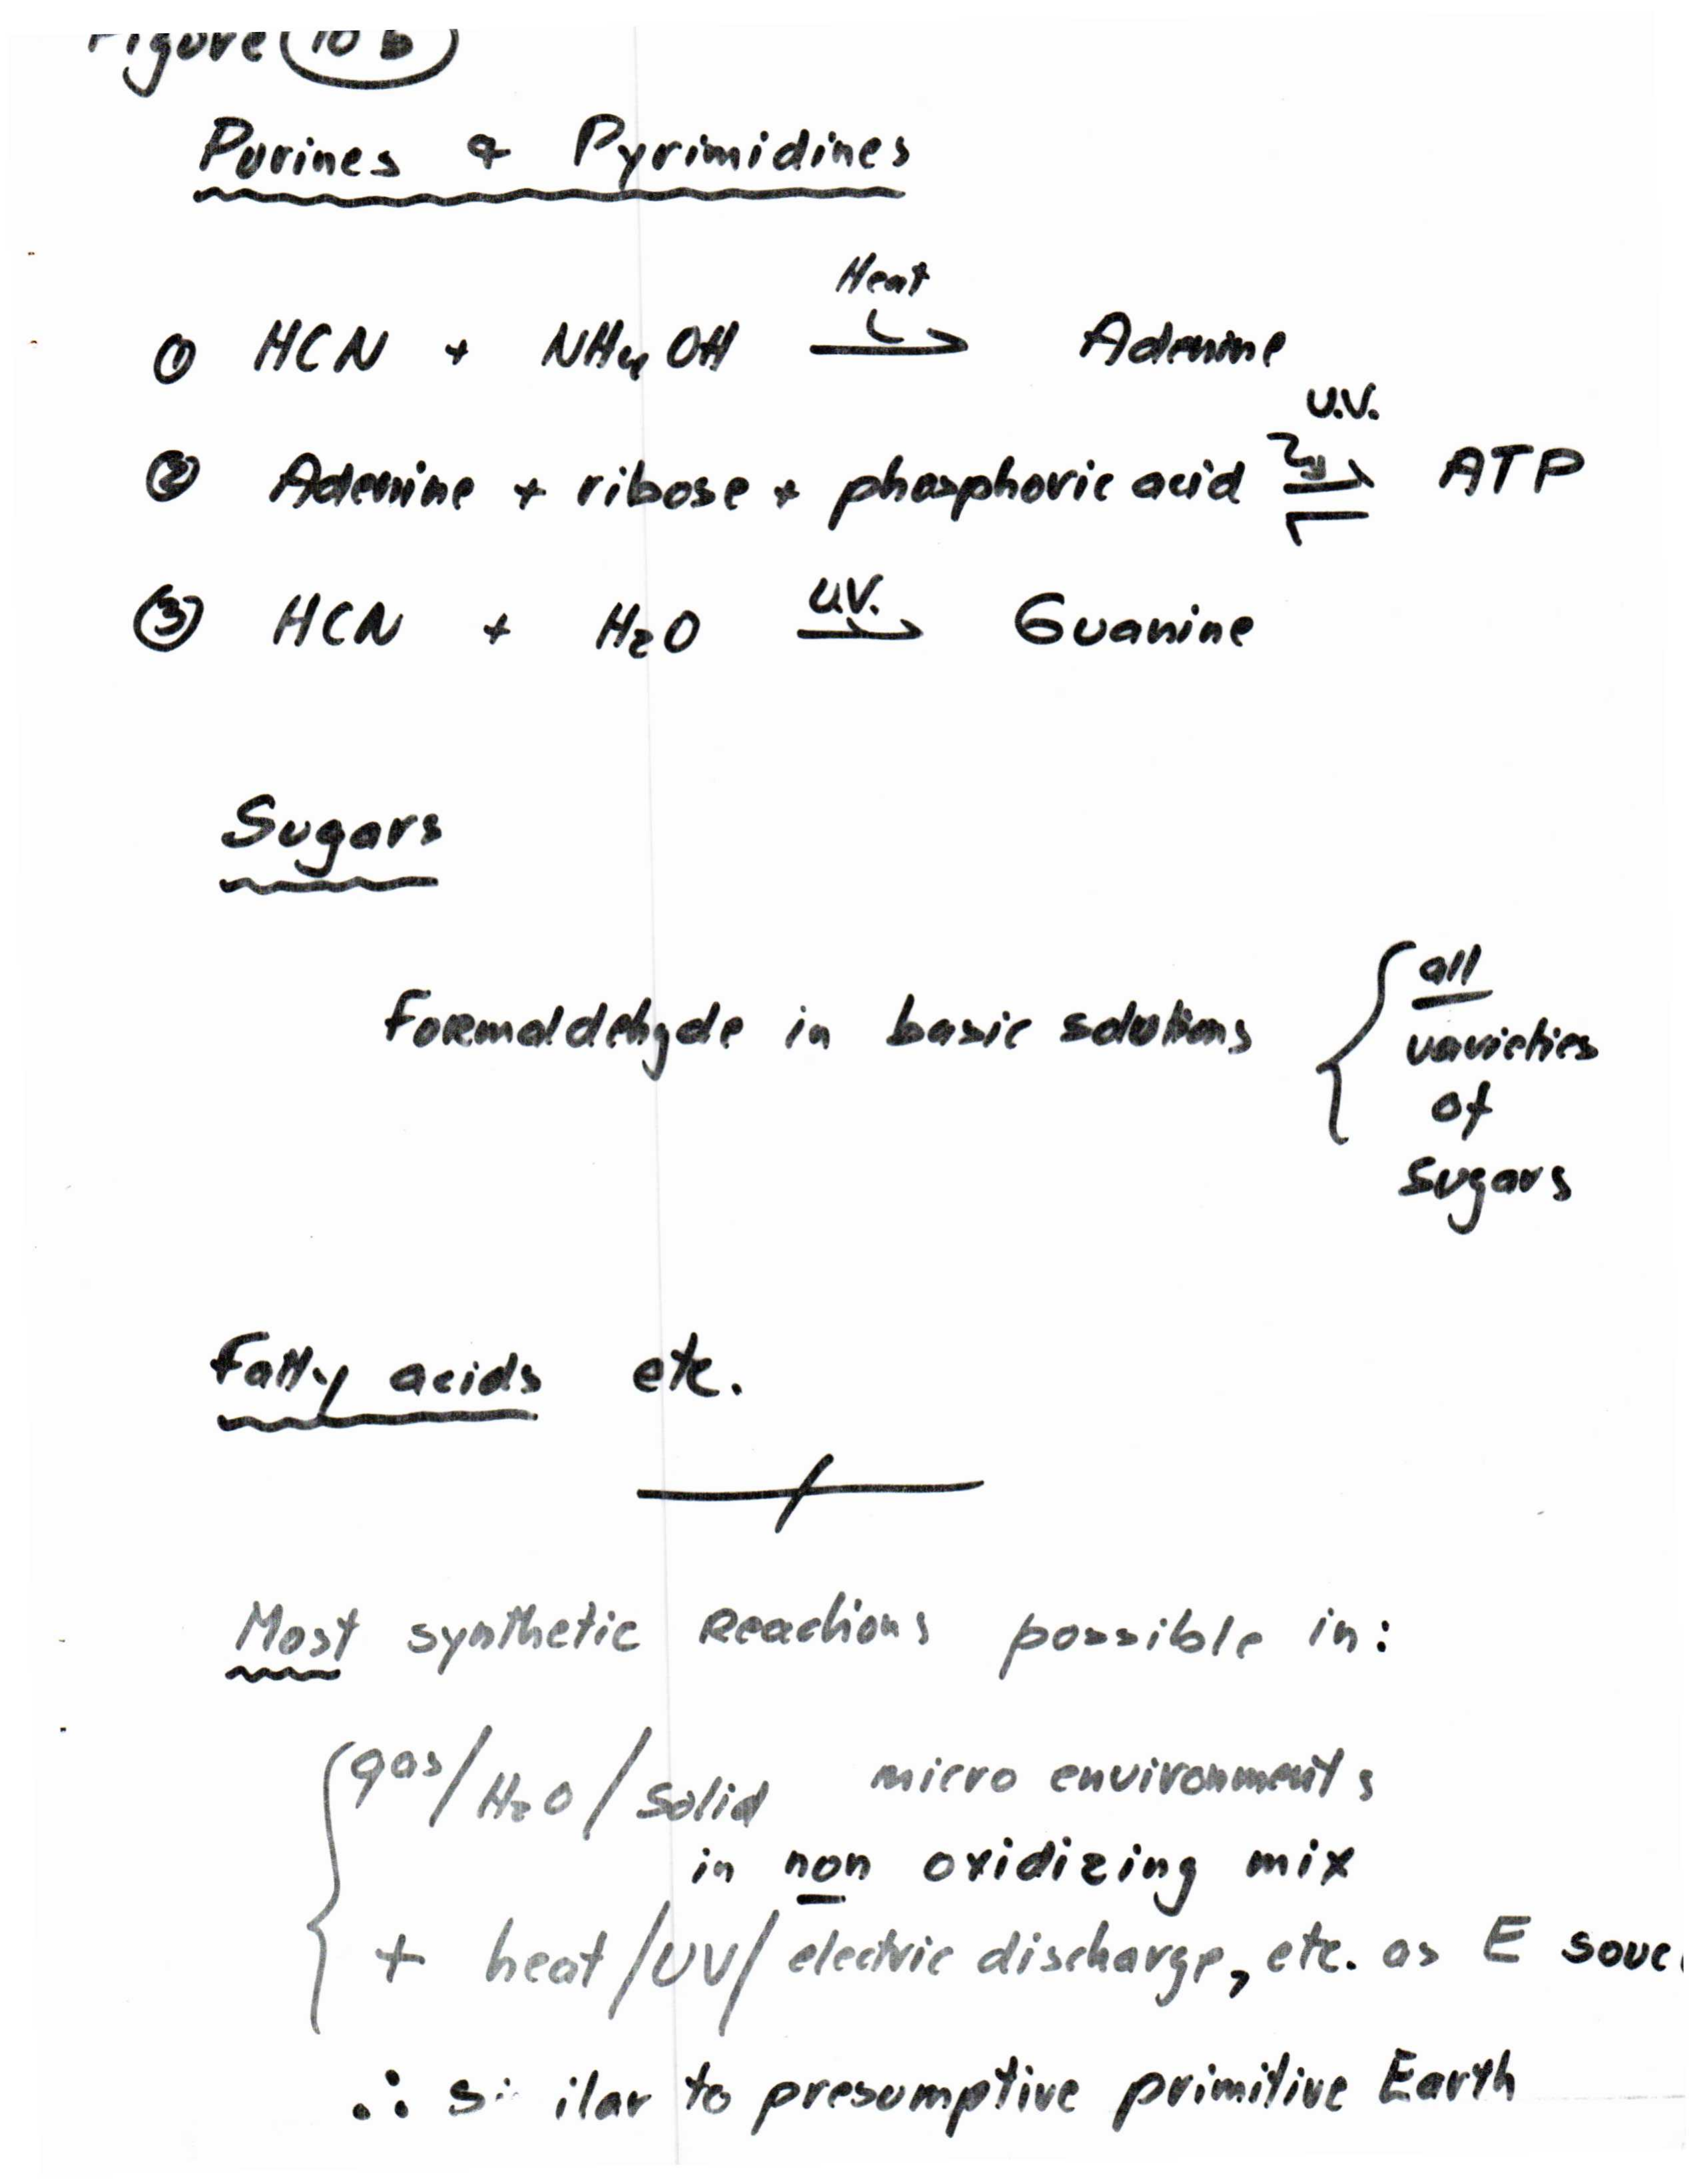 Figure 10 b
Purines & Pyrimidines
Heat
① HCN + NH4OH → Adenine
U.V.
② Adenine + ribose + phosphoric acid ⇌ ATP
U.V.
③ HCN + H2O → Guanine
Sugars
all
Formaldehyde in basic solutions { varieties
of
sugars
Fatty acids etc.
Most synthetic Reactions possible in:
gas/H2O/solid micro environments
in non oxidizing mix
+ heat/UV/electric discharge, etc. as E souc
∴ s ilar to presumptive primitive Earth